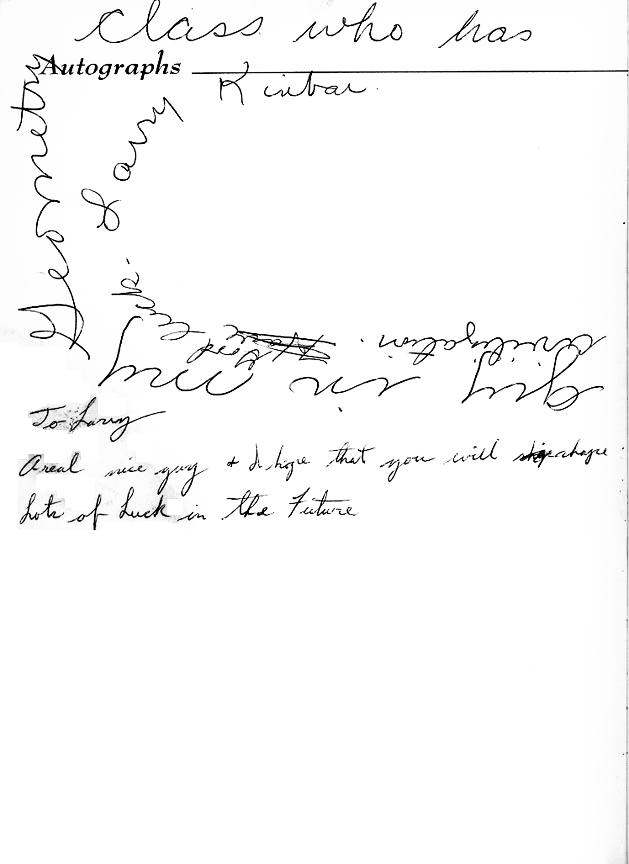 Autographs
guy in my
Geometry
class who has
civilization. Good Luck.
Larry
Kinbar.
To Larry
A real nice guy + I hope that you will shape
Lots of Luck in the Future